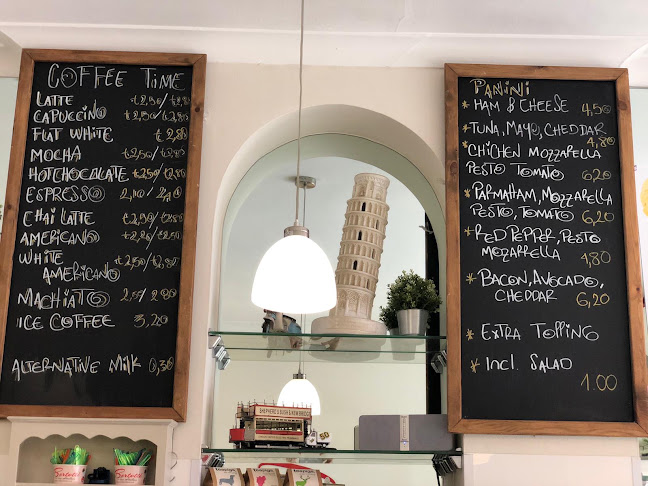 COFFEE TIME
LATTE £2,50/£2,80
CAPUCCINO £2,50/£2,80
FLAT WHITE £2,80
MOCHA £2,50/£2,80
HOTCHOCOLATE £2,50/£2,80
ESPRESSO
CHAI LATTE £2,50/£2,80
AMERICANO
WHITE
AMERICANO £2,50/£2,80
MACHIATTO 2,50/2,80
ICE COFFEE 3,20
ALTERNATIVE MILK 0,30
PANINI
* HAM & CHEESE 4,50
* TUNA, MAYO, CHEDDAR
4,80
* CHICHEN MOZZARELLA
PESTO TOMATO 6,20
* PARMAHAM, MOZZARELLA
PESTO, TOMATO 6,20
* RED PEPPER, PESTO
MOZZARELLA 4,80
* BACON, AVOCADO,
CHEDDAR 6,20
* EXTRA TOPPING
* INCL. SALAD
1.00